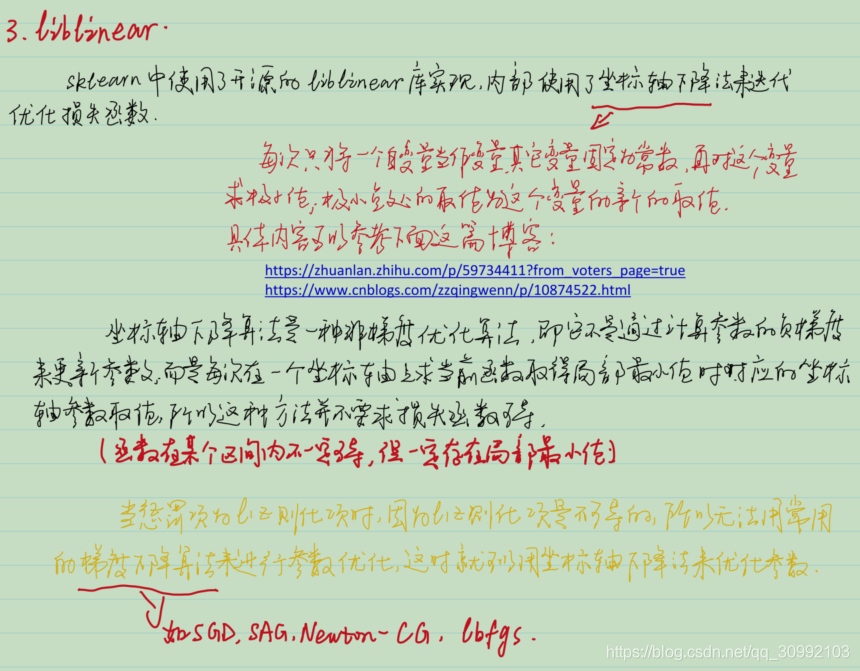 3. liblinear.
sklearn中使用了开源的liblinear库实现,内部使用了坐标轴下降法来迭代
优化损失函数.
每次只将一个自变量当作变量其它变量固定为常数,再对这个变量
求极小值,极小点处的取值为这个变量的新的取值.
具体内容可以参考下面这篇博客:
https://zhuanlan.zhihu.com/p/59734411?from_voters_page=true
https://www.cnblogs.com/zzqingwenn/p/10874522.html
坐标轴下降算法是一种非梯度优化算法,即它不是通过计算参数的负梯度
来更新参数,而是每次在一个坐标轴上求当前函数取得局部最小值时对应的坐标
轴参数取值,所以这种方法并不要求损失函数可导.
(函数在某个区间内不一定可导,但一定存在局部最小值)
当惩罚项为l1正则化项时,因为l1正则化项是不可导的,所以无法用常用
的梯度下降算法来进行参数优化,这时就可以用坐标轴下降法来优化参数.
如SGD, SAG, Newton-CG, lbfgs.
https://blog.csdn.net/qq_30992103